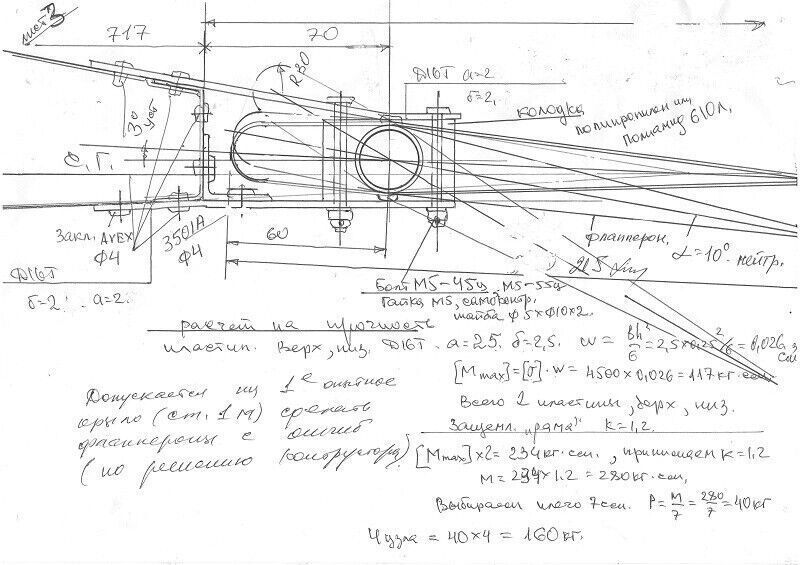 лист 3
717
70
R=30
Д16Т а=2
δ=2,
колодка
полипропилен или
полиамид 610л,
3°
уст
С.Г.
Закл. AVEX
Ф4
3501А
Ф4
60
флапперон,
α=10° нейтр.
Д16Т
δ=2 а=2.
Болт М5-45ш М5-55ш
Гайка М5, самоконтр.
шайба Ф5хФ10х2.
расчет на прочность
пластин. верх, низ. Д16Т. а=25. δ=2,5. w = bh²/6 = 2,5х0,25²/6 = 0,026 см3
[Mmax]=[σ]·w = 4500х0,026=117кг·см
Всего 2 пластины, верх, низ.
Защемл. "рама" к=1,2.
[Mmax]х2= 234кг·см., принимаем к=1,2
М= 234х1.2 = 280кг·см,
Выбираем плечо 7см. Р= М/7 = 280/7 = 40кг
4 узла = 40х4 = 160кг.
Допускается на 1е опытное
крыло (ст. 1м) сделать
флаппероны с
(по решению конструктора)